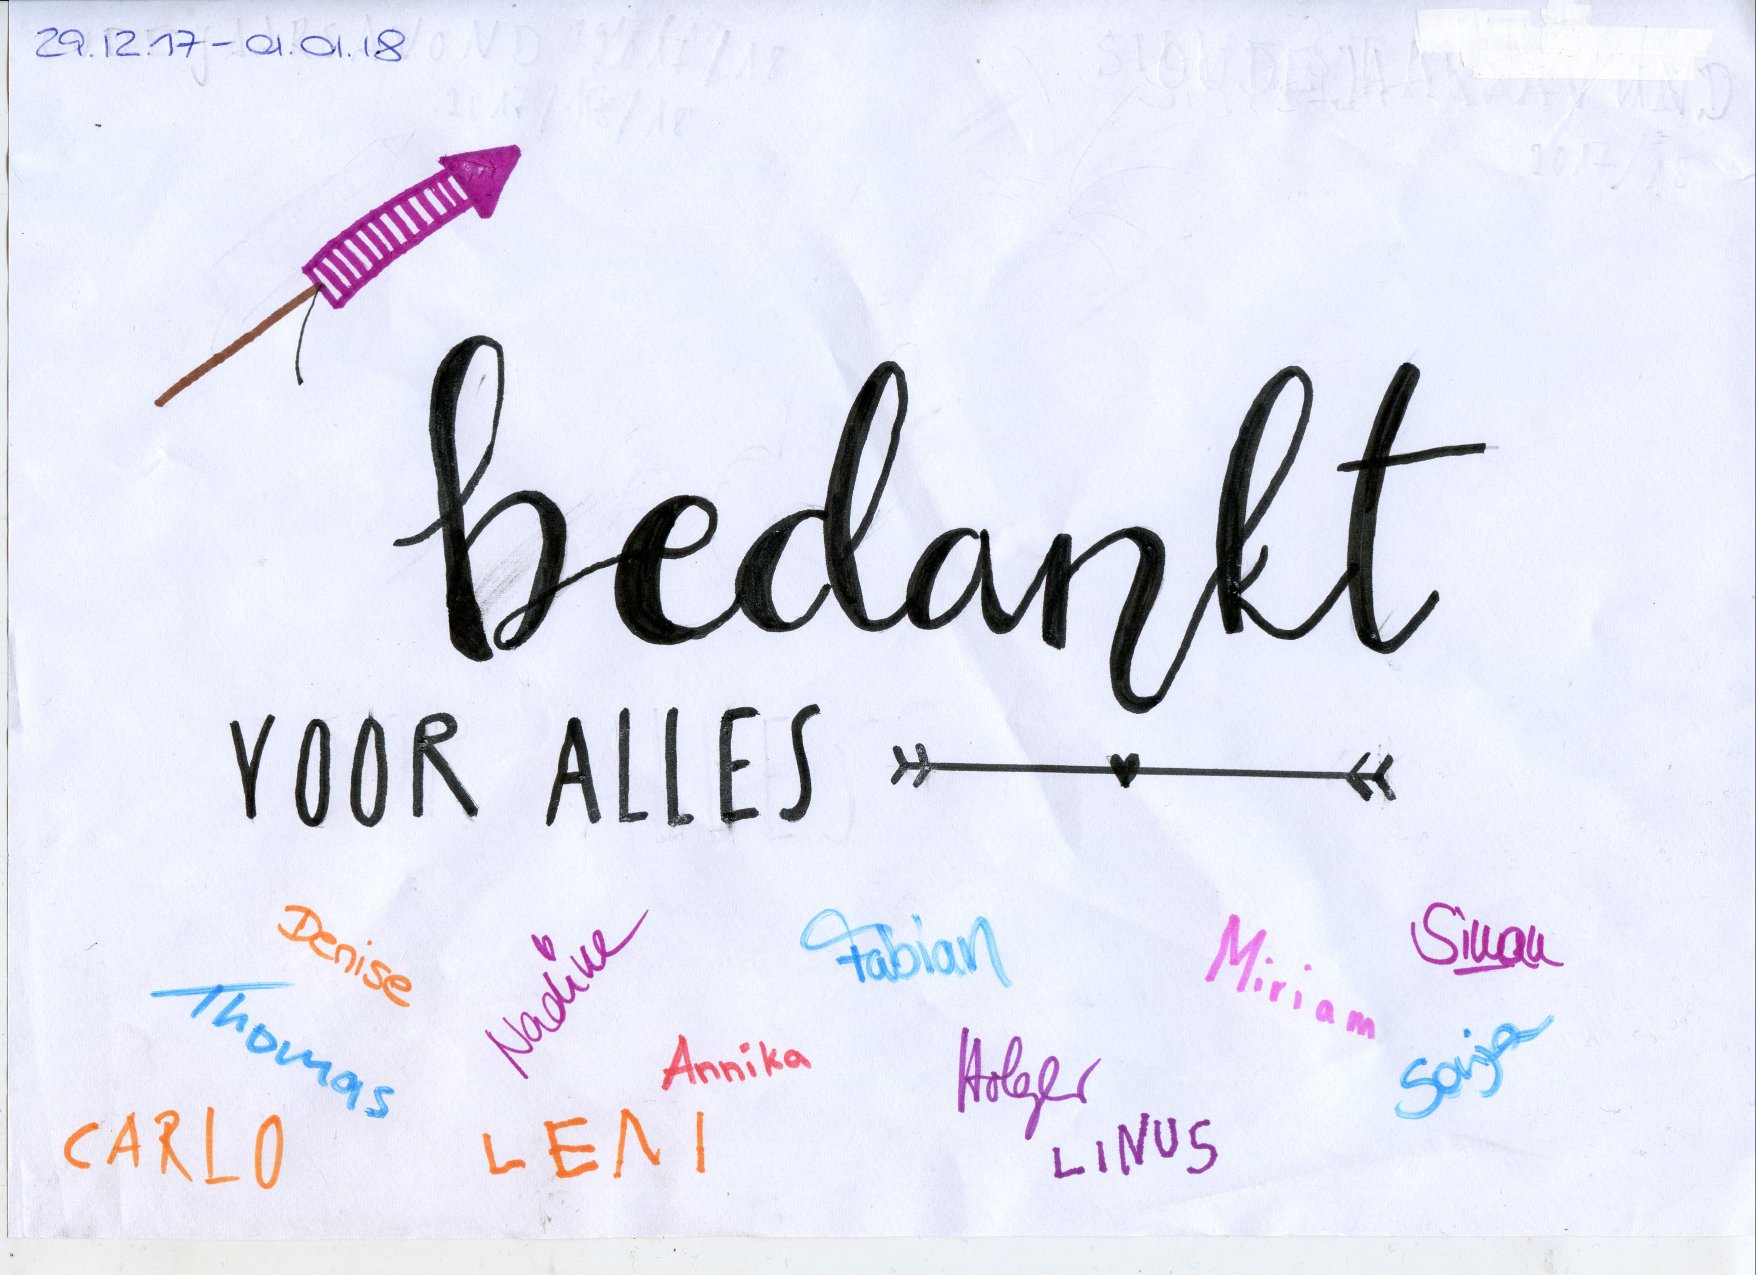 29.12.17-01.01.18
bedankt
VOOR ALLES
Denise
Nadine
Fabian
Miriam
Simon
Thomas
Annika
Holger
Sonja
CARLO
LENI
LINUS